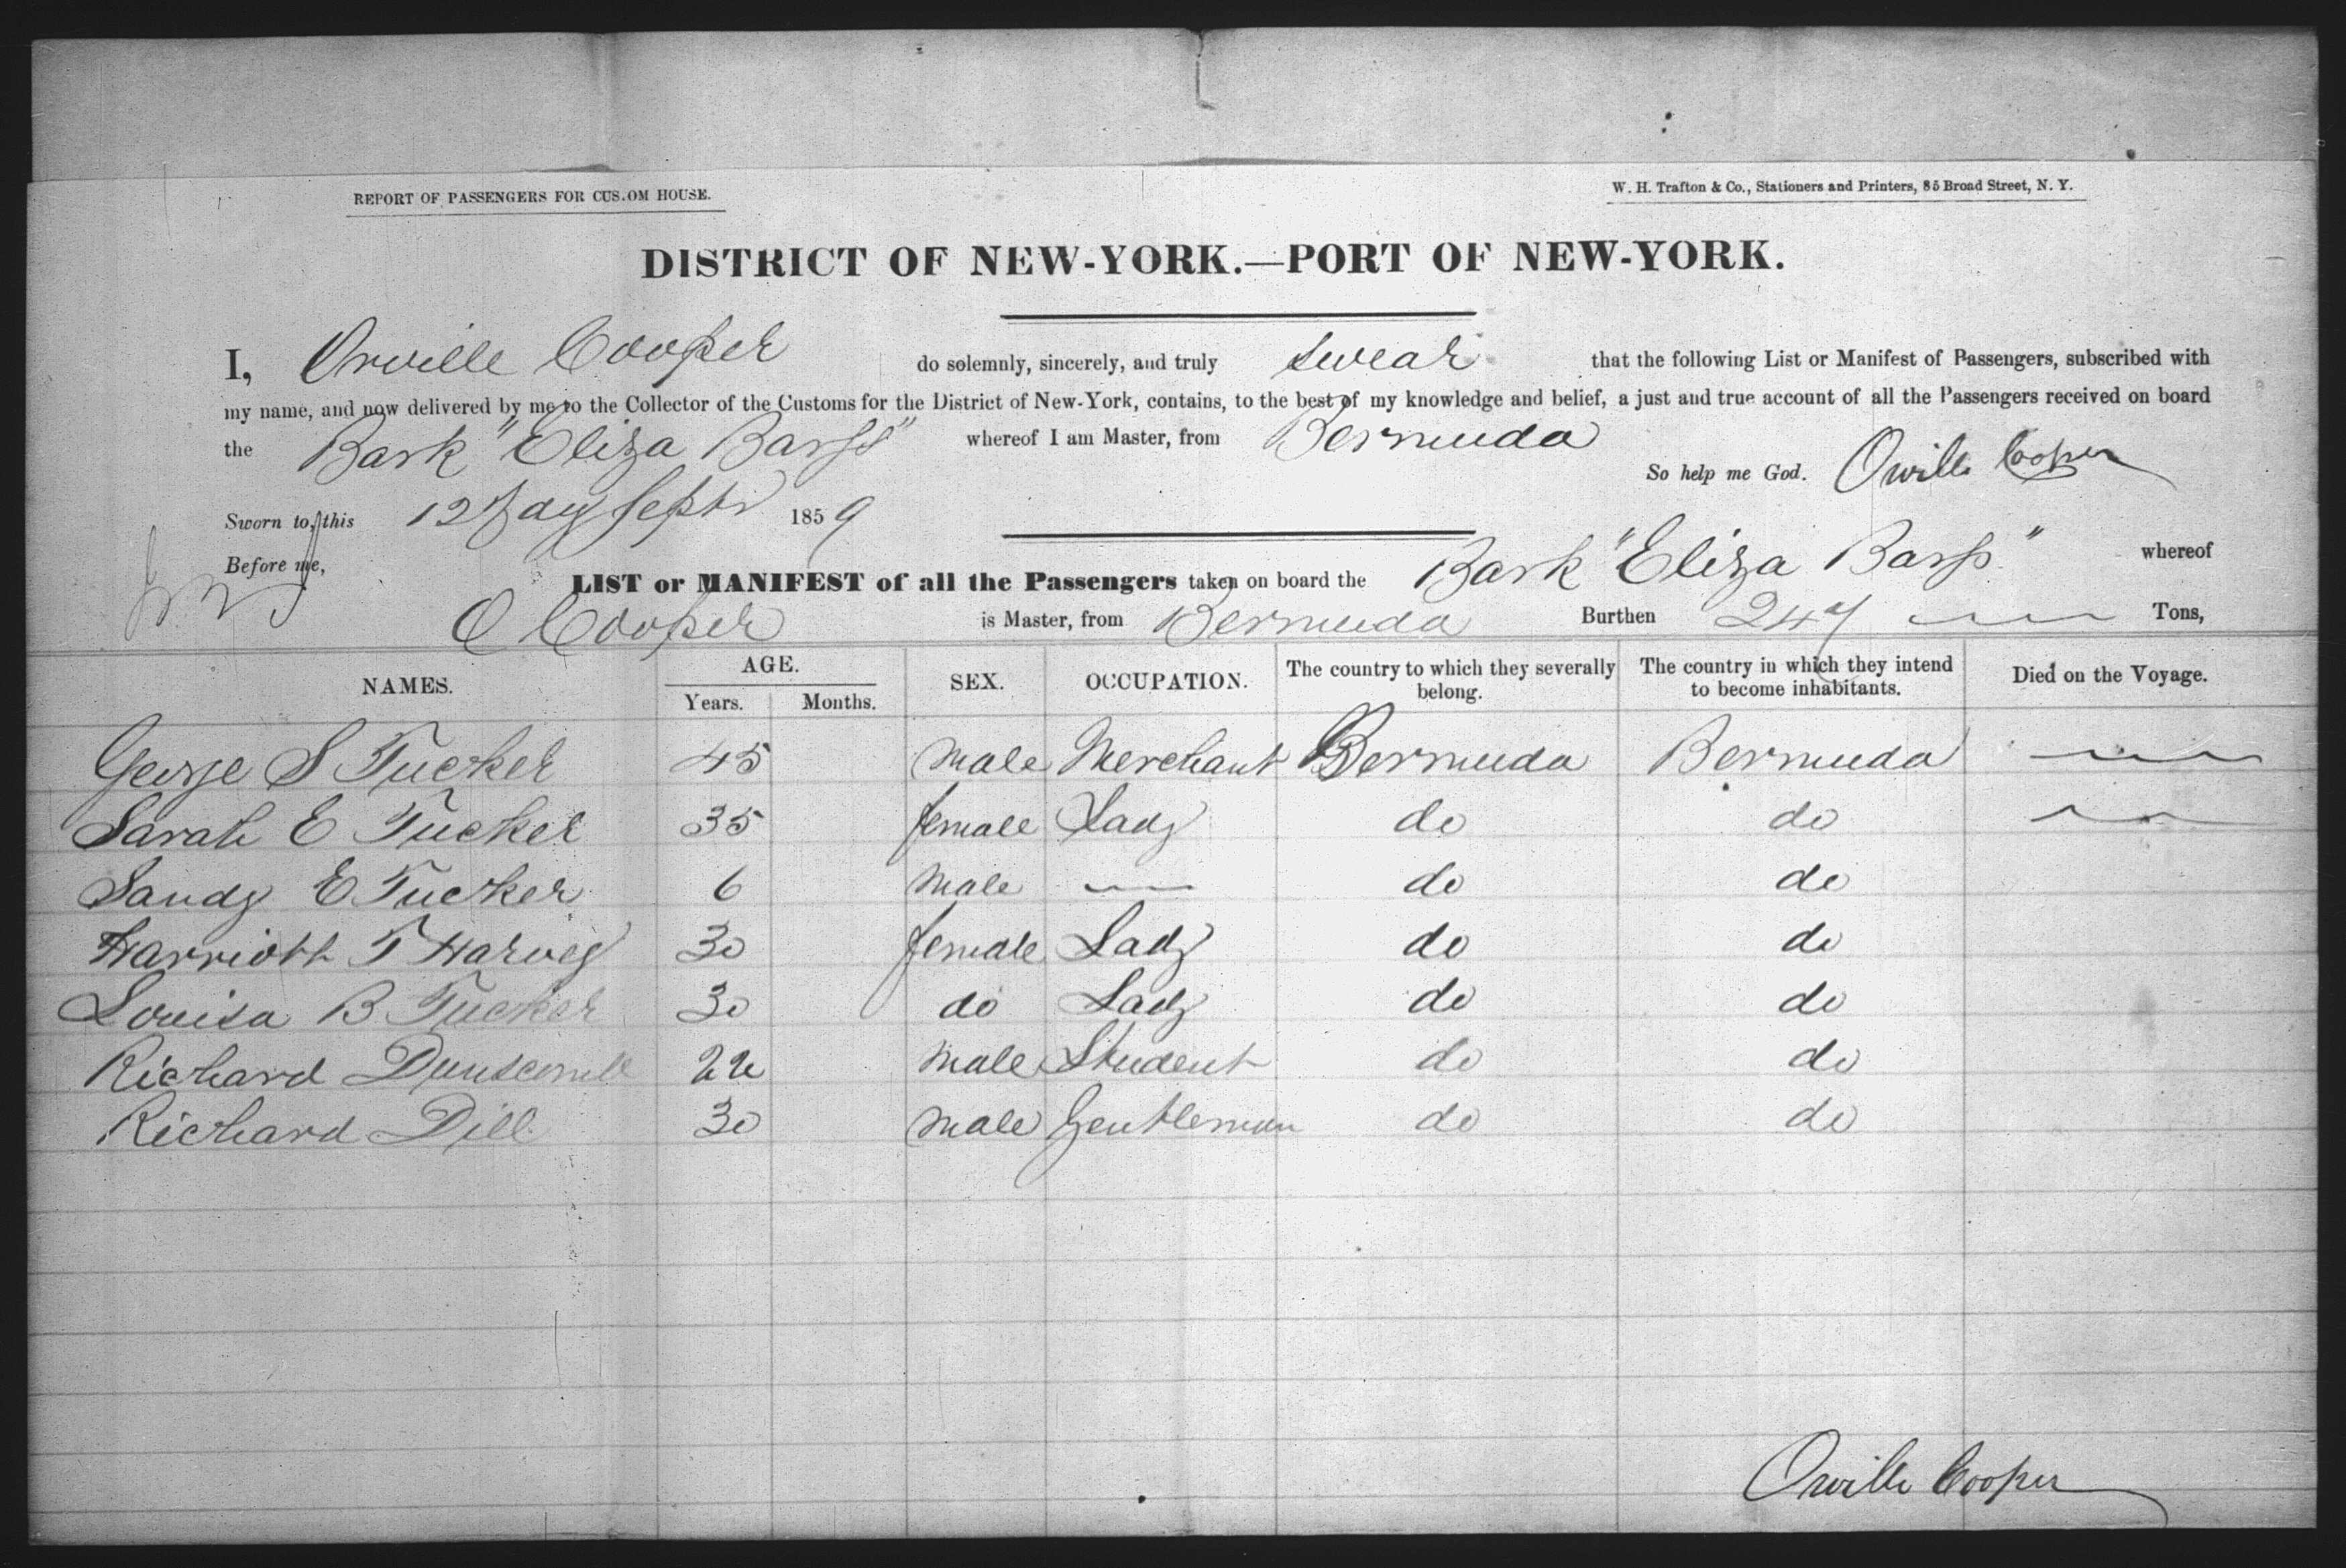 REPORT OF PASSENGERS FOR CUS.OM HOUSE.
W. H. Trafton & Co., Stationers and Printers, 85 Broad Street, N. Y.
DISTRICT OF NEW-YORK.—PORT OF NEW-YORK.
I, Orville Cooper do solemnly, sincerely, and truly swear that the following List or Manifest of Passengers, subscribed with
my name, and now delivered by me to the Collector of the Customs for the District of New-York, contains, to the best of my knowledge and belief, a just and true account of all the Passengers received on board
the Bark "Eliza Barss" whereof I am Master, from Bermuda
So help me God. Orville Cooper
Sworn to, this 12 day Septr 1859
Before me,
LIST or MANIFEST of all the Passengers taken on board the Bark "Eliza Barss" whereof
O Cooper is Master, from Bermuda Burthen 247 Tons,
NAMES. AGE. Years. Months. SEX. OCCUPATION. The country to which they severally belong. The country in which they intend to become inhabitants. Died on the Voyage.
George S Tucker 45 Male Merchant Bermuda Bermuda
Sarah E Tucker 35 female Lady do do
Sandy E Tucker 6 Male — do do
Harriott T Harvey 30 female Lady do do
Louisa B Tucker 30 do Lady do do
Richard Dunscomb 22 Male Student do do
Richard Dill 30 Male Gentleman do do
Orville Cooper